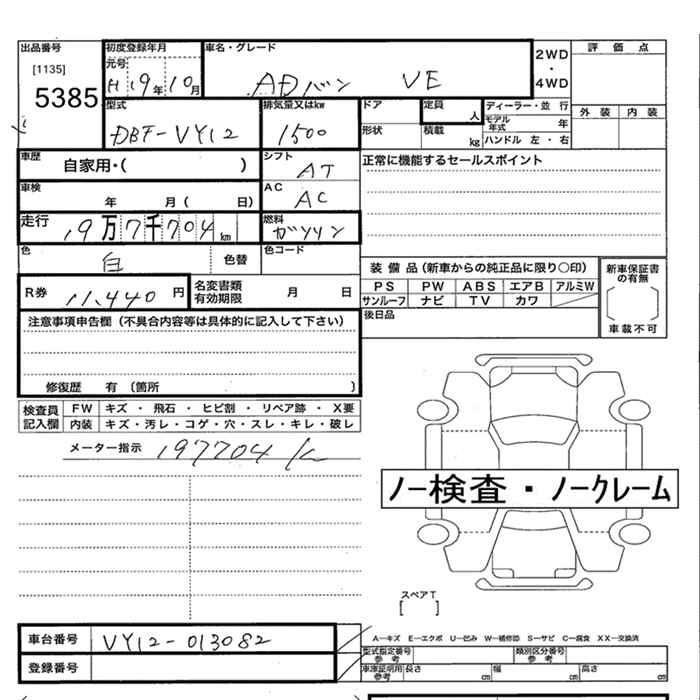 出品番号
[1135]
5385
初度登録年月
元号
H 19年10月
車名・グレード
ADバン VE
2WD
・
4WD
評価点
外装 内装
型式
DBF-VY12
排気量又はkw
1500
ドア
形状
定員
人
積載
kg
ディーラー・並 行
モデル年式 年
ハンドル 左・右
車歴
自家用・( )
シフト
AT
正常に機能するセールスポイント
車検
年 月( 日)
AC
AC
走行
19万7千704km
燃料
ガソリン
色
白
色替
色コード
装備品(新車からの純正品に限り○印)
PS PW ABS エアB アルミW
サンルーフ ナビ TV カワ
新車保証書の有無
車載不可
R券
11,440 円
名変書類有効期限 月 日
後日品
注意事項申告欄(不具合内容等は具体的に記入して下さい)
修復歴 有 (箇所 )
検査員記入欄
FW キズ・飛石・ヒビ割・リペア跡・X要
内装 キズ・汚レ・コゲ・穴・スレ・キレ・破レ
メーター指示 197704 K
ノー検査・ノークレーム
スペアT
[ ]
車台番号 VY12-013082
登録番号
A―キズ E―エクボ U―凹み W―補修跡 S―サビ C―腐食 XX―交換済
型式指定番号参考
類別区分番号参考
車庫証明用参考 長さ cm 幅 cm 高さ cm